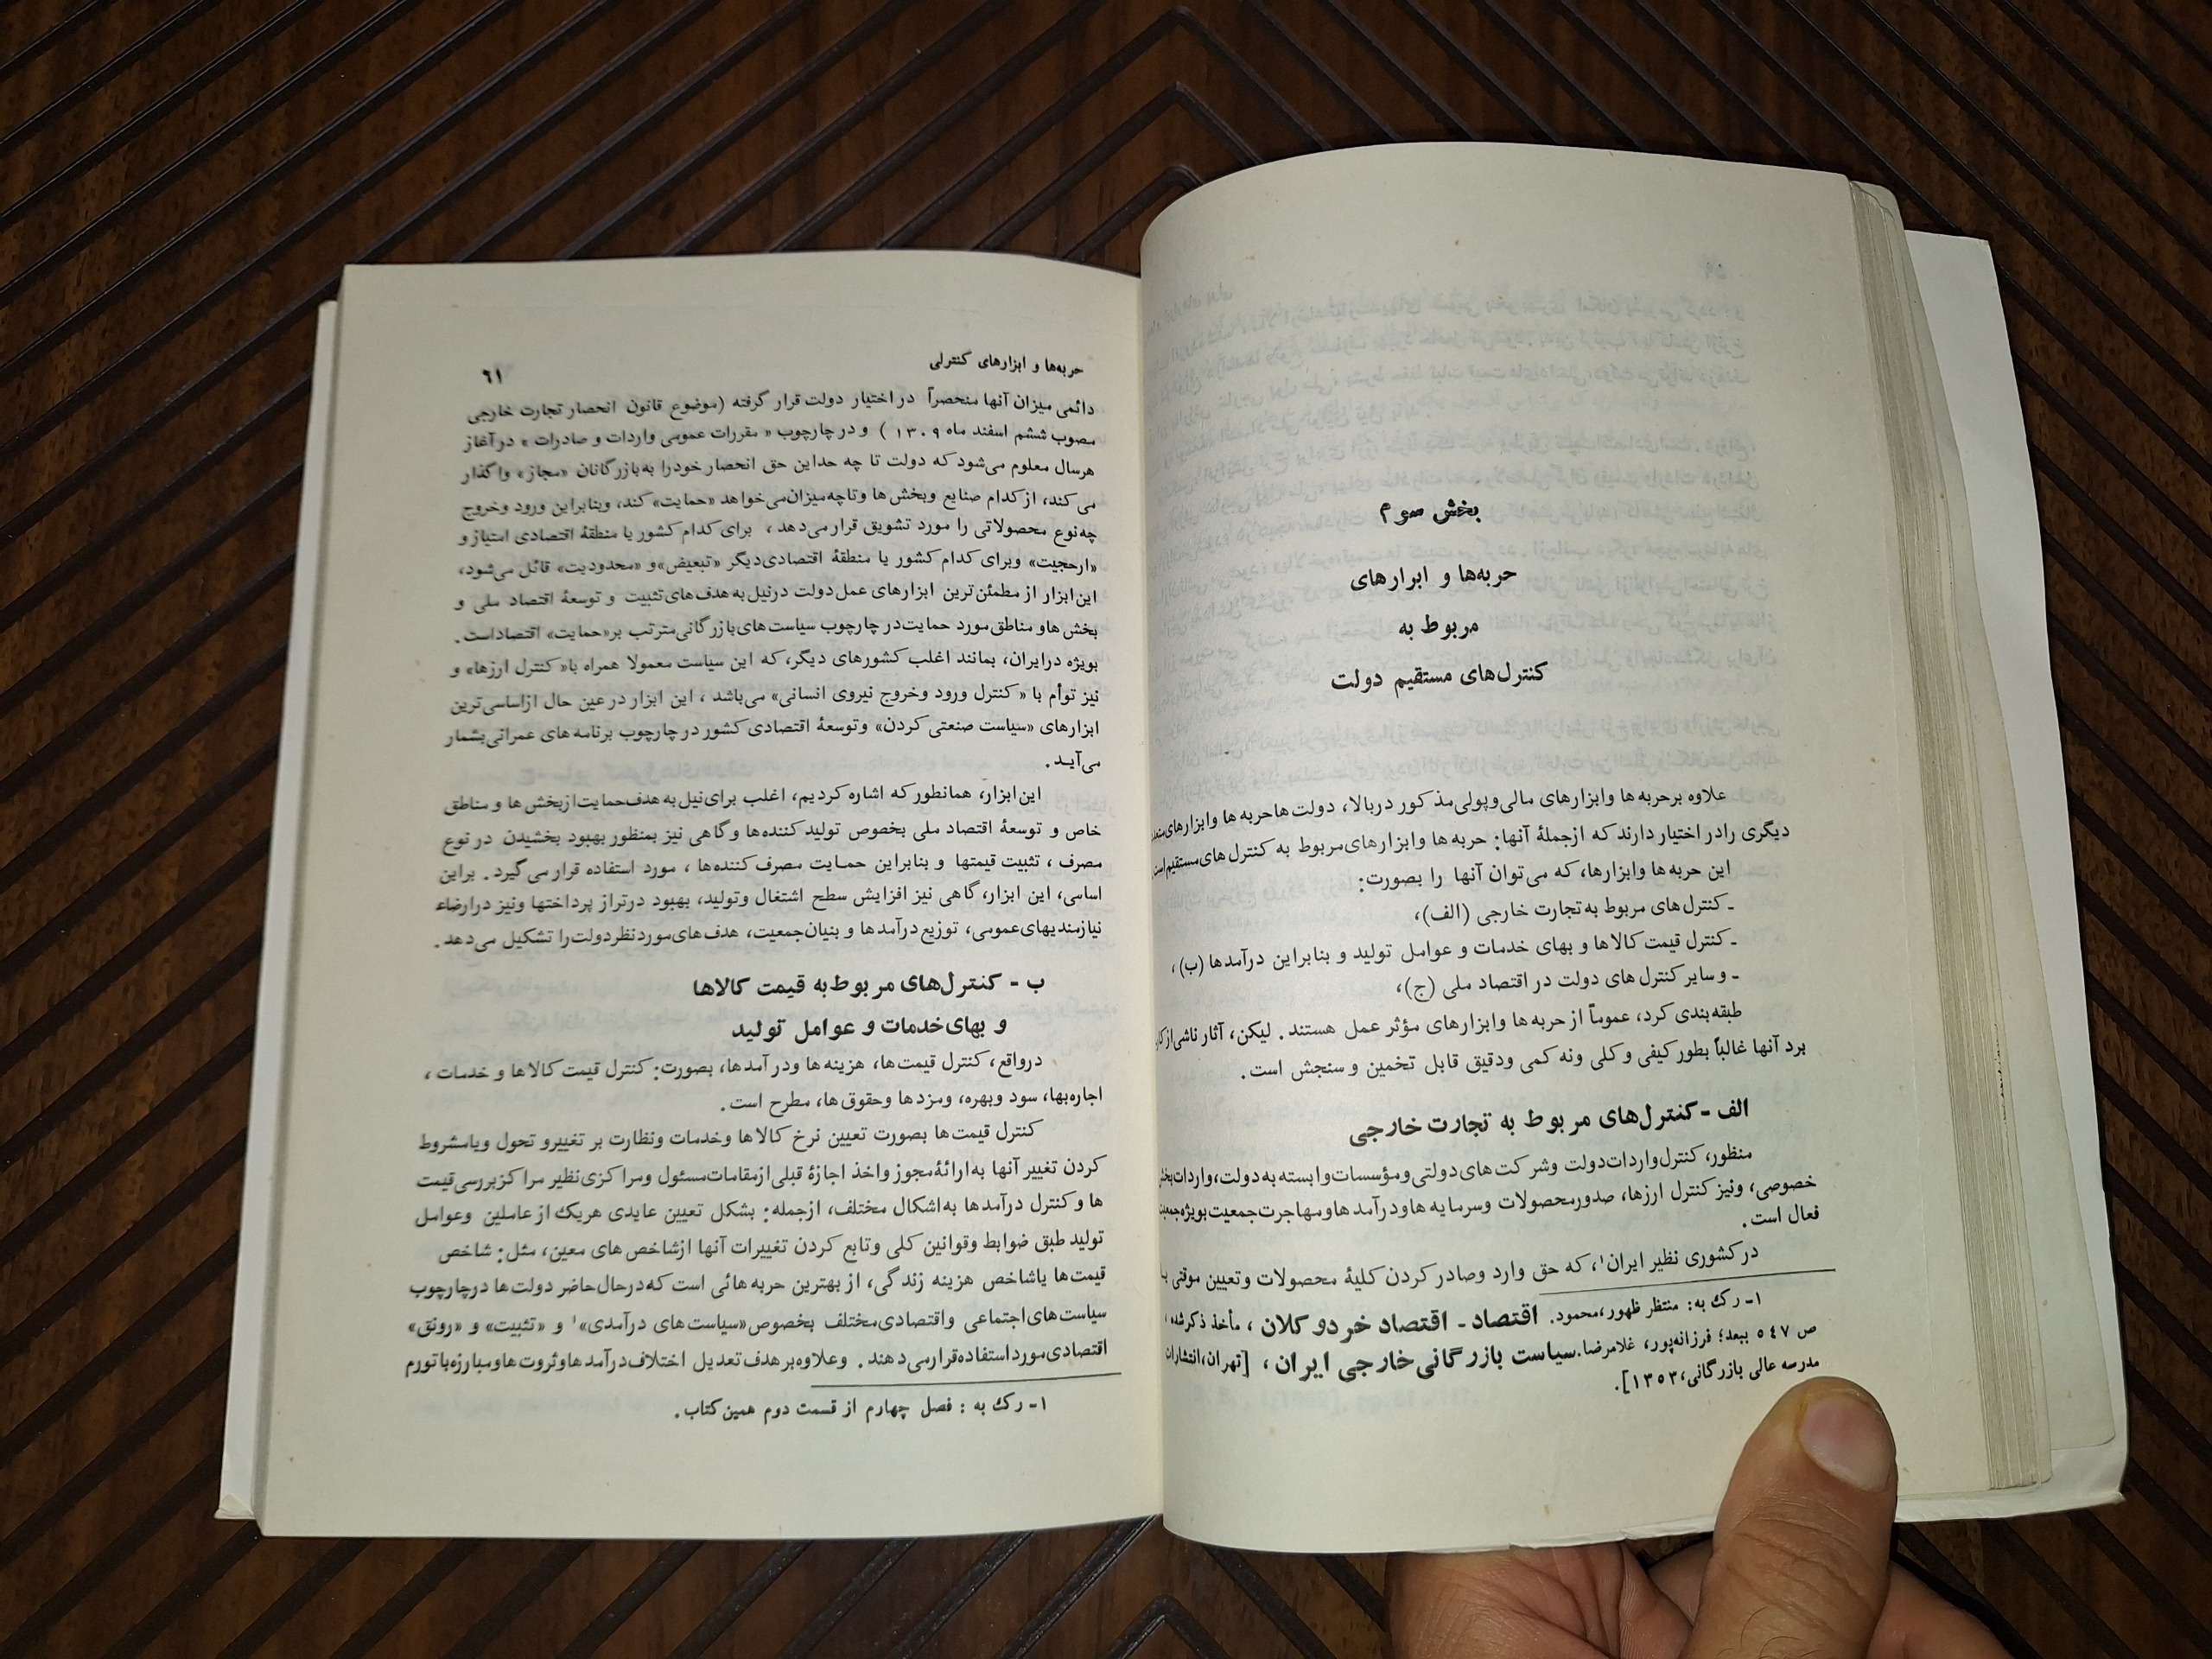 بخش سوم
حربه‌ها و ابرارهای
مربوط به
کنترل‌های مستقیم دولت
علاوه بر حربه‌ها و ابزارهای مالی و پولی مذکور در بالا، دولت‌ها حربه‌ها و ابزارهای
دیگری را در اختیار دارند که از جملهٔ آنها: حربه‌ها و ابزارهای مربوط به کنترل‌های مستقیم است.
این حربه‌ها و ابزارها، که می‌توان آنها را بصورت:
ـ کنترل‌های مربوط به تجارت خارجی (الف)،
ـ کنترل قیمت کالاها و بهای خدمات و عوامل تولید و بنابراین درآمدها (ب)،
ـ و سایر کنترل‌های دولت در اقتصاد ملی (ج)،
طبقه‌بندی کرد، عموماً از حربه‌ها و ابزارهای مؤثر عمل هستند. لیکن، آثار ناشی از
برد آنها غالباً بطور کیفی و کلی و نه کمی و دقیق قابل تخمین و سنجش است.
الف - کنترل‌های مربوط به تجارت خارجی
منظور، کنترل واردات دولت و شرکت‌های دولتی و مؤسسات وابسته به دولت، واردات
خصوصی، و نیز کنترل ارزها، صدور محصولات و سرمایه‌ها و درآمدها و مهاجرت جمعیت بویژه
فعال است.
در کشوری نظیر ایران۱، که حق وارد و صادر کردن کلیهٔ محصولات و تعیین موقتی
۱- رک به: منتظر ظهور، محمود. اقتصاد ـ اقتصاد خرد و کلان، مأخذ ذکر شده
ص ۵۴۷ ببعد؛ فرزانه‌پور، غلامرضا. سیاست بازرگانی خارجی ایران، [تهران، انتشارات
مدرسه عالی بازرگانی، ۱۳۵۳].
حربه‌ها و ابزارهای کنترلی ۶۱
دائمی میزان آنها منحصراً در اختیار دولت قرار گرفته (موضوع قانون انحصار تجارت خارجی
مصوب ششم اسفند ماه ۱۳۰۹) و در چارچوب «مقررات عمومی واردات و صادرات» در آغاز
هر سال معلوم می‌شود که دولت تا چه حد این حق انحصار خود را به بازرگانان «مجاز» واگذار
می‌کند، از کدام صنایع و بخش‌ها و تا چه میزان می‌خواهد «حمایت» کند، و بنابراین ورود و خروج
چه نوع محصولاتی را مورد تشویق قرار می‌دهد، برای کدام کشور یا منطقهٔ اقتصادی امتیاز و
«ارحجیت» و برای کدام کشور یا منطقهٔ اقتصادی دیگر «تبعیض» و «محدودیت» قائل می‌شود،
این ابزار از مطمئن‌ترین ابزارهای عمل دولت در نیل به هدف‌های تثبیت و توسعهٔ اقتصاد ملی و
بخش‌ها و مناطق مورد حمایت در چارچوب سیاست‌های بازرگانی مترتب بر «حمایت» اقتصاد است.
بویژه در ایران، بمانند اغلب کشورهای دیگر، که این سیاست معمولا همراه با «کنترل ارزها» و
نیز توأم با «کنترل ورود و خروج نیروی انسانی» می‌باشد، این ابزار در عین حال از اساسی‌ترین
ابزارهای «سیاست صنعتی کردن» و توسعهٔ اقتصادی کشور در چارچوب برنامه‌های عمرانی بشمار
می‌آید.
این ابزار، همانطور که اشاره کردیم، اغلب برای نیل به هدف حمایت از بخش‌ها و مناطق
خاص و توسعهٔ اقتصاد ملی بخصوص تولید کننده‌ها و گاهی نیز بمنظور بهبود بخشیدن در نوع
مصرف، تثبیت قیمتها و بنابراین حمایت مصرف‌کننده‌ها، مورد استفاده قرار می‌گیرد. براین
اساسی، این ابزار، گاهی نیز افزایش سطح اشتغال و تولید، بهبود در تراز پرداختها و نیز در ارضاء
نیازمندیهای عمومی، توزیع درآمدها و بنیان جمعیت، هدف‌های مورد نظر دولت را تشکیل می‌دهد.
ب - کنترل‌های مربوط به قیمت کالاها
و بهای خدمات و عوامل تولید
در واقع، کنترل قیمت‌ها، هزینه‌ها و درآمدها، بصورت: کنترل قیمت کالاها و خدمات،
اجاره‌بها، سود و بهره، و مزدها و حقوق‌ها، مطرح است.
کنترل قیمت‌ها بصورت تعیین نرخ کالاها و خدمات و نظارت بر تغییر و تحول و یا مشروط
کردن تغییر آنها به ارائهٔ مجوز و اخذ اجازهٔ قبلی از مقامات مسئول و مراکزی نظیر مراکز بررسی قیمت
ها و کنترل درآمدها به اشکال مختلف، از جمله: بشکل تعیین عایدی هریک از عاملین و عوامل
تولید طبق ضوابط و قوانین کلی و تابع کردن تغییرات آنها از شاخص‌های معین، مثل: شاخص
قیمت‌ها یا شاخص هزینه زندگی، از بهترین حربه‌هائی است که در حال حاضر دولت‌ها در چارچوب
سیاست‌های اجتماعی و اقتصادی مختلف بخصوص «سیاست‌های درآمدی»۱ و «تثبیت» و «رونق»
اقتصادی مورد استفاده قرار می‌دهند. و علاوه بر هدف تعدیل اختلاف درآمدها و ثروت‌ها و مبارزه با تورم
۱- رک به: فصل چهارم از قسمت دوم همین کتاب.